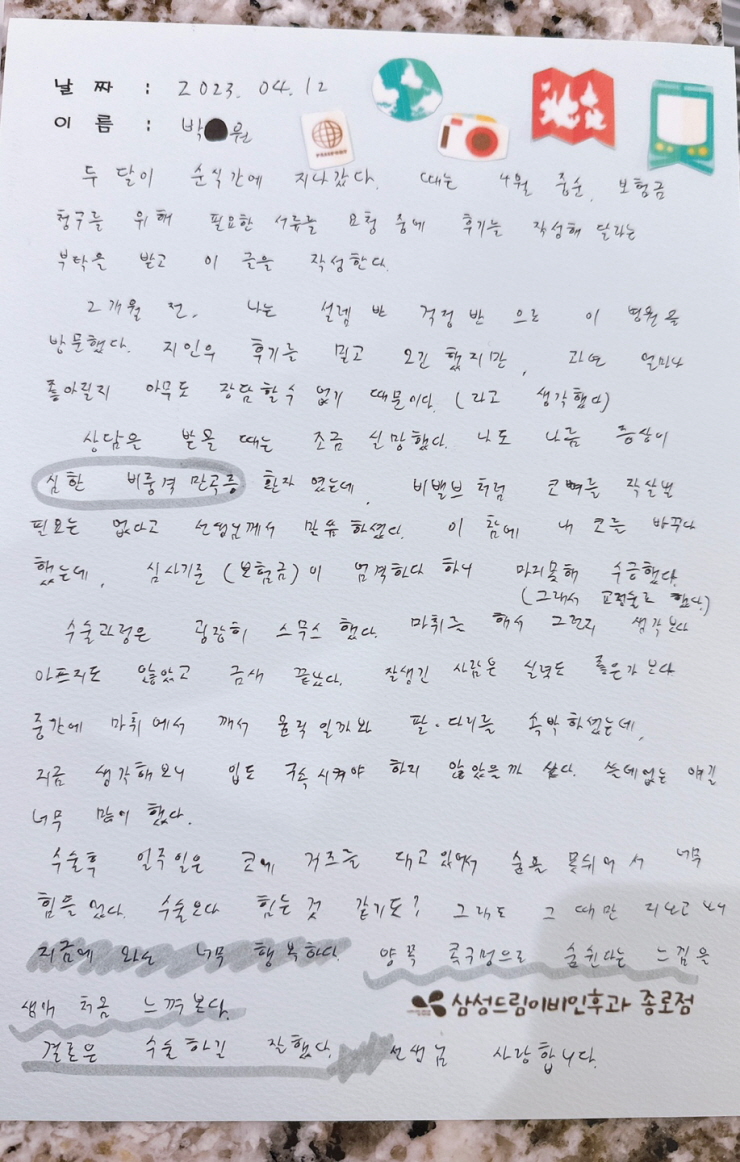 날 짜 : 2023. 04. 12
이 름 : 박 원
PASSPORT
두 달이 순식간에 지나갔다. 때는 4월 중순, 보험금
청구를 위해 필요한 서류를 요청 중에 후기를 작성해 달라는
부탁을 받고 이 글을 작성한다.
2개월 전, 나는 설렘 반 걱정 반 으로 이 병원을
방문했다. 지인의 후기를 믿고 오긴 했지만, 과연 얼마나
좋아질지 아무도 장담할수 없기 때문이다. (라고 생각했다)
상담을 받을 때는 조금 실망했다. 나도 나름 증상이
심한 비중격 만곡증 환자 였는데, 비밸브 처럼 코뼈를 작살낼
필요는 없다고 선생님께서 말씀 하셨다. 이 참에 내 코를 바꾸나
했는데, 심사기준 (보험금)이 엄격하다 하니 마지못해 수긍했다.
(그래서 교정술로 했다.)
수술과정은 굉장히 스무스 했다. 마취를 해서 그런지 생각보다
아프지도 않았고 금새 끝났다. 잘생긴 사람은 실력도 좋은가 보다
중간에 마취에서 깨서 움직일까봐 팔·다리를 속박하셨는데,
지금 생각해보니 입도 구속시켜야 하지 않았을까 싶다. 쓸데없는 얘길
너무 많이 했다.
수술후 일주일은 코에 거즈를 대고 있어서 숨을 못쉬어서 너무
힘들었다. 수술보다 힘든 것 같기도? 그래도 그 때만 지나고 보니
지금에 와선 너무 행복하다. 양쪽 콧구멍으로 숨쉰다는 느낌을
생애 처음 느껴본다.
삼성드림이비인후과 종로점
결론은 수술하길 잘했다. 선생님 사랑합니다.